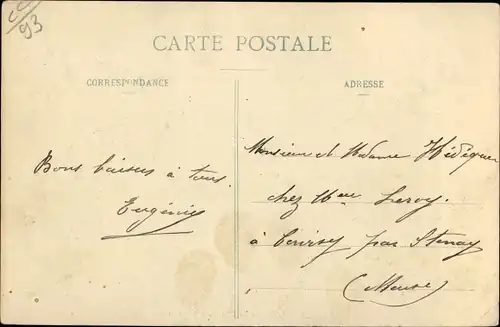 CC
93
CARTE POSTALE
CORRESPONDANCE
ADRESSE
Bons baisers à tous.
Eugénie
Monsieur et Madame
chez Mme Leroy.
à par Stenay
(Meuse)